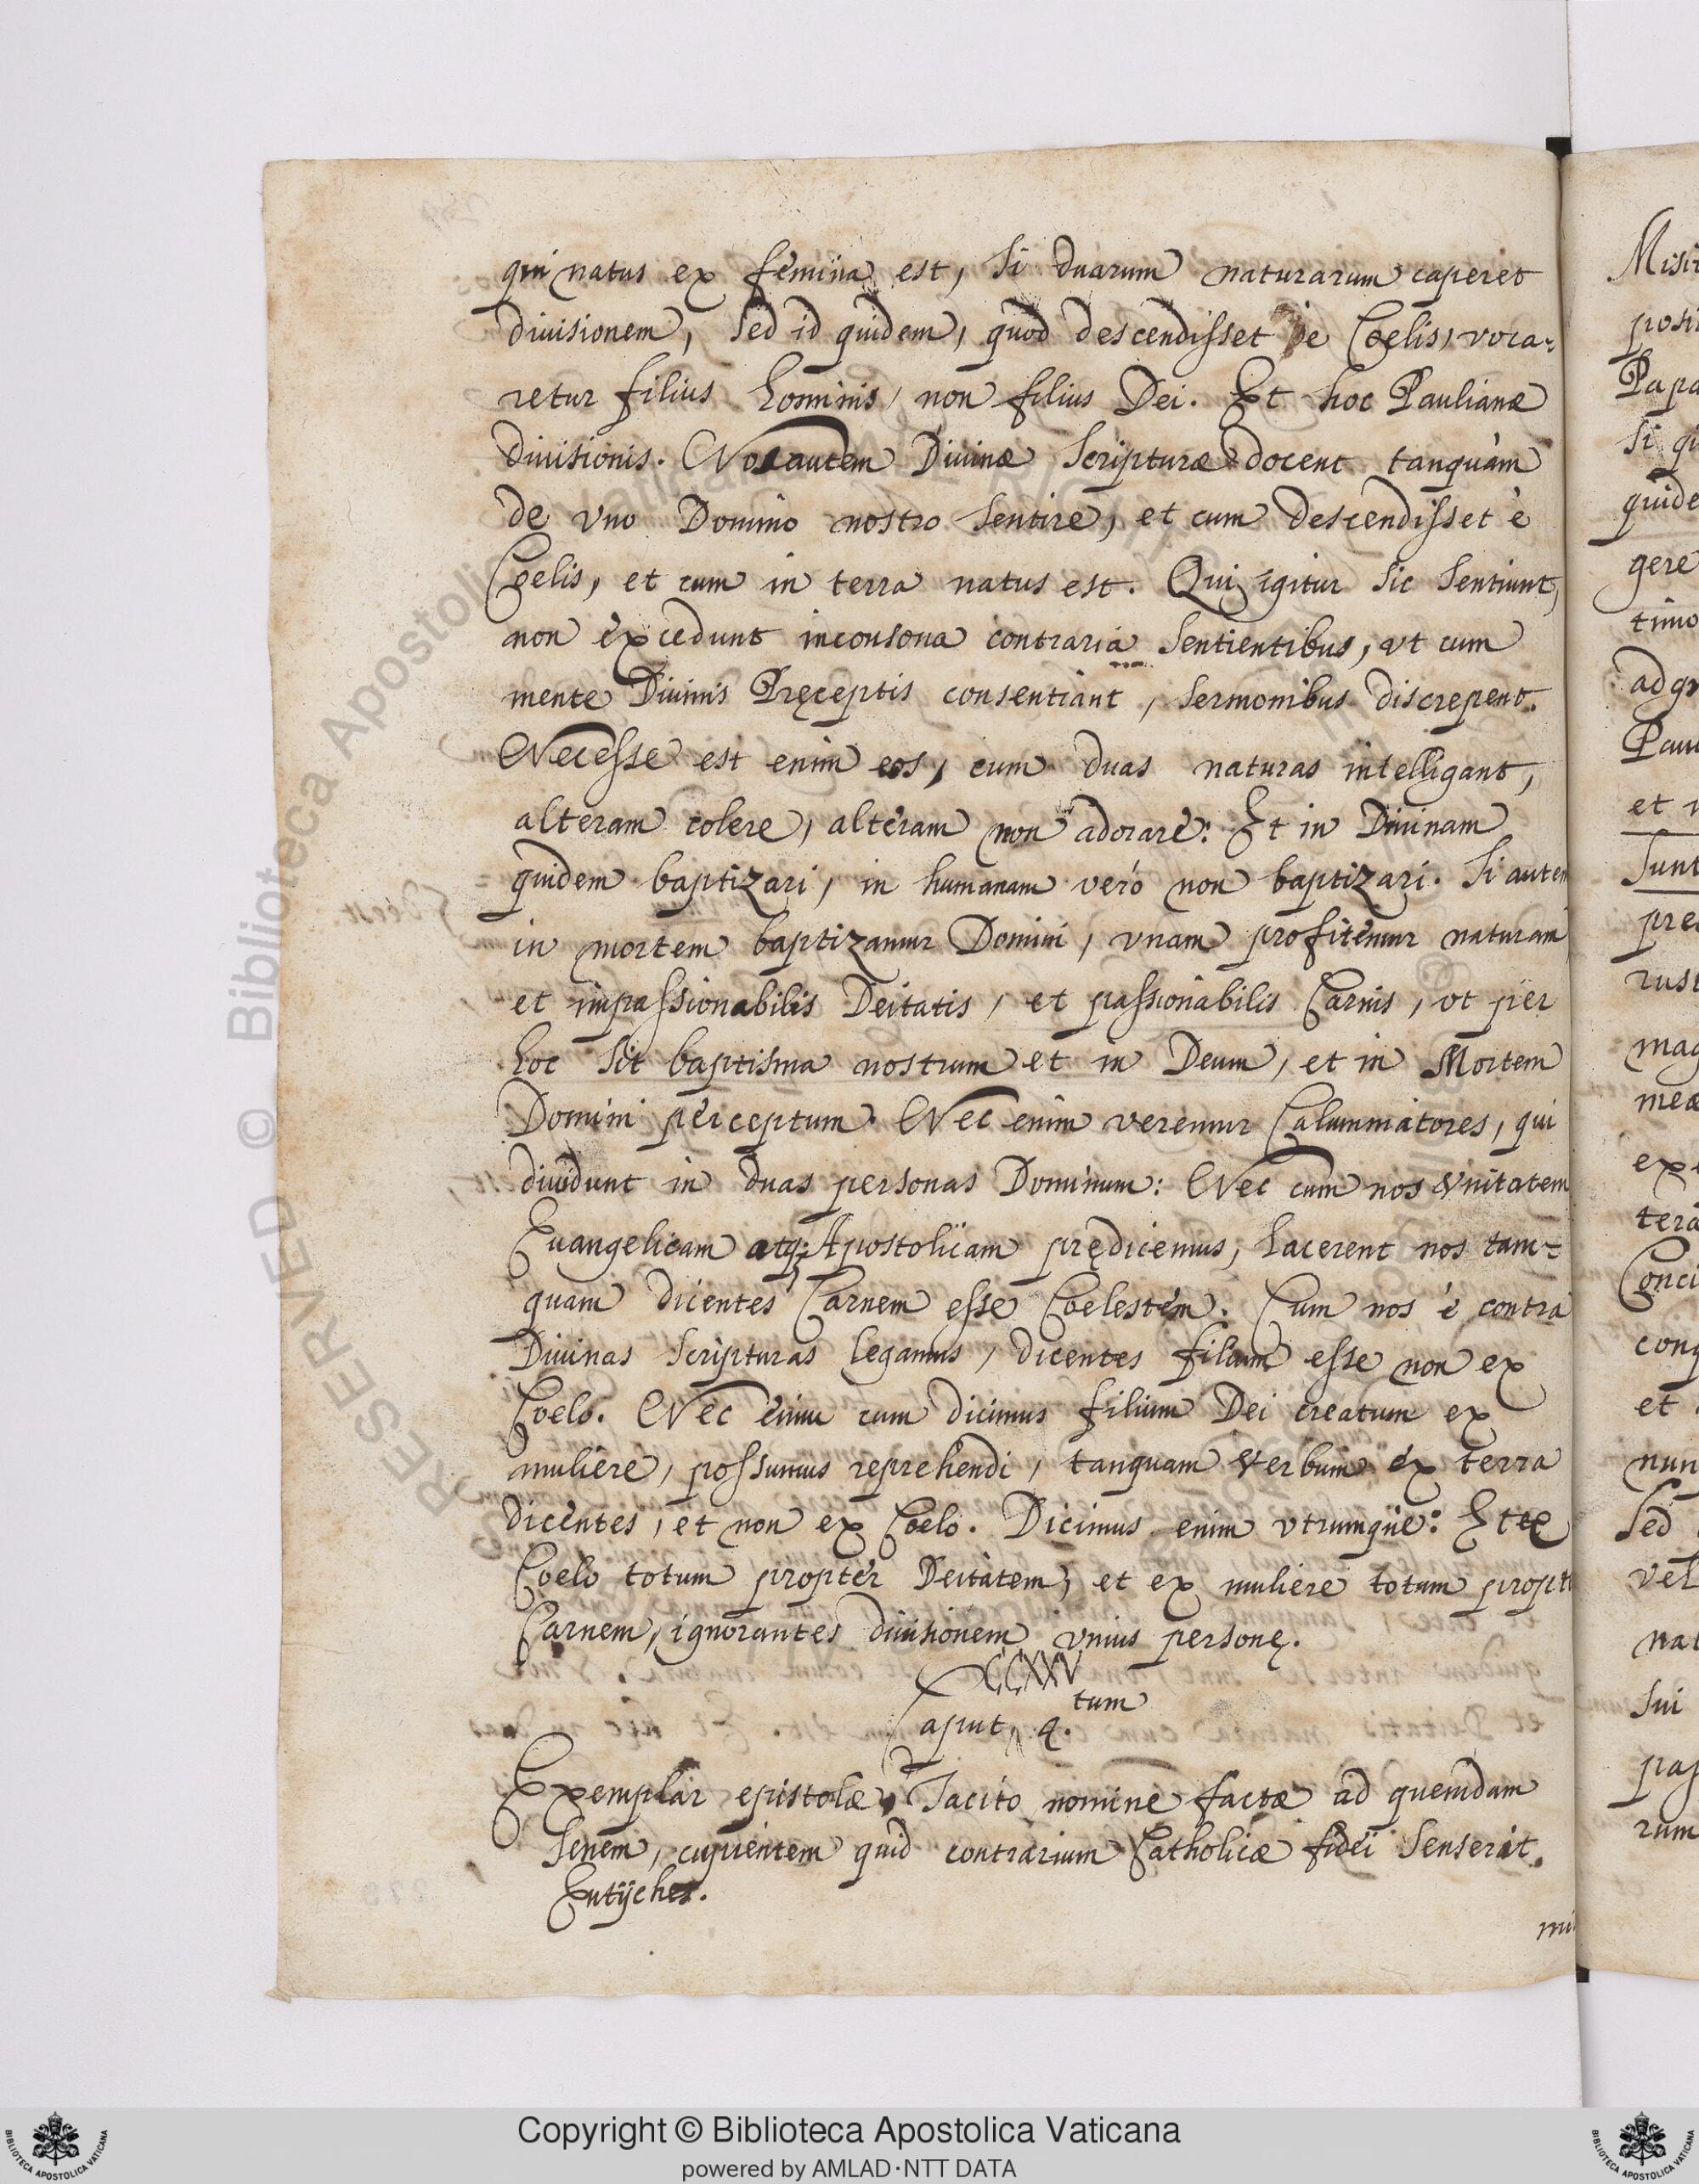 qui natus ex femina est, si duarum naturarum caperet
diuisionem, sed id quidem, quod descendisset de Coelis, voca=
retur filius hominis, non filius Dei. Et hoc Paulianæ
diuisionis. Nos autem Diuinæ Scripturæ docent tanquàm
de vno Domino nostro sentire, et cum descendisset è
Coelis, et cum in terra natus est. Qui igitur sic sentiunt,
non excedunt inconsona contraria sentientibus, vt cum
mente Diuinis Pręceptis consentiant, sermonibus discrepent.
Necesse est enim eos, cum duas naturas intelligant,
alteram colere, alteram non adorare: Et in Diuinam
quidem baptizari, in humanam verò non baptizari. Si autem
in mortem baptizamur Domini, vnam profitemur naturam
et impassionabilis Deitatis, et passionabilis Carnis, vt per
hoc sit baptisma nostrum et in Deum, et in Mortem
Domini perceptum. Nec enim veremur Calumniatores, qui
diuidunt in duas personas Dominum: Nec cum nos vnitatem
Euangelicam atq; Apostolicam prędicemus, lacerent nos tam=
quam dicentes Carnem esse Coelestem. Cum nos è contra
Diuinas Scripturas legamus, dicentes filium esse non ex
Coelo. Nec enim cum dicimus filium Dei creatum ex
muliere, possumus reprehendi, tanquam Verbum ex terra
dicentes, et non ex Coelo. Dicimus enim vtrumque: Et e
Coelo totum propter Deitatem, et ex muliere totum propt
Carnem, ignorantes diuisionem vnius personę.
CCXXV
Caput 4.tum
Exemplar epistolæ, Tacito nomine factæ ad quemdam
Senem, cupientem quid contrarium Catholicæ fidei senserit
Eutyches.
Misit
posi
Papa
si qu
quide
gere
timo
Pau
et
sunt
rust
mag
meæ
tera
Conci
et
nun
Sed
vel
nat
sui
rum
© Biblioteca Apostolica Vaticana
Copyright © Biblioteca Apostolica Vaticana
powered by AMLAD·NTT DATA
BIBLIOTECA APOSTOLICA VATICANA
BIBLIOTECA APOSTOLICA VATICANA